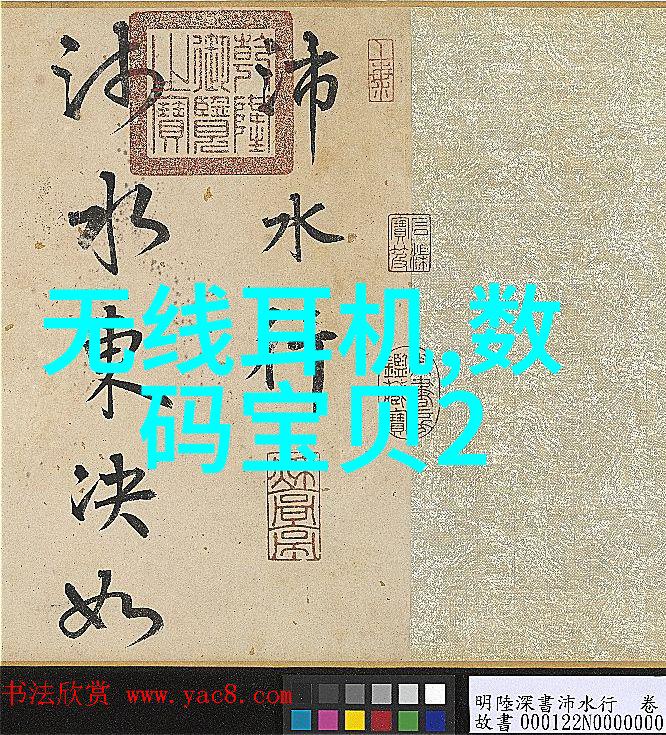 沛水行
沛水東決如
乾隆御覽之寶
无线耳机,数
码宝贝2
书法欣赏 www.yac8.com
明陸深書沛水行 卷
故書 000122N0000000